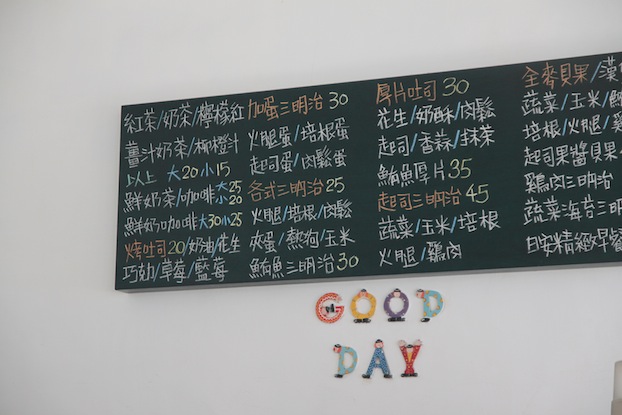 紅茶/奶茶/檸檬紅
薑汁奶茶/柳橙汁
以上 大20小15
鮮奶茶/咖啡 大25 小20
鮮奶咖啡大30小25
烤吐司20/奶油/花生
巧幼/草莓/藍莓
加蛋三明治30
火腿蛋/培根蛋
起司蛋/肉鬆蛋
各式三明治25
火腿/培根/肉鬆
夾蛋/熱狗/玉米
鮪魚三明治30
厚片吐司30
花生/奶酥/肉鬆
起司/香蒜/抹茶
鮪魚厚片35
起司三明治45
蔬菜/玉米/培根
火腿/雞肉
全麥貝果/
蔬菜/玉米/
培根/火腿/
起司果醬貝果
雞肉三明治
蔬菜海苔三明
日安精緻早餐
GOOD
DAY